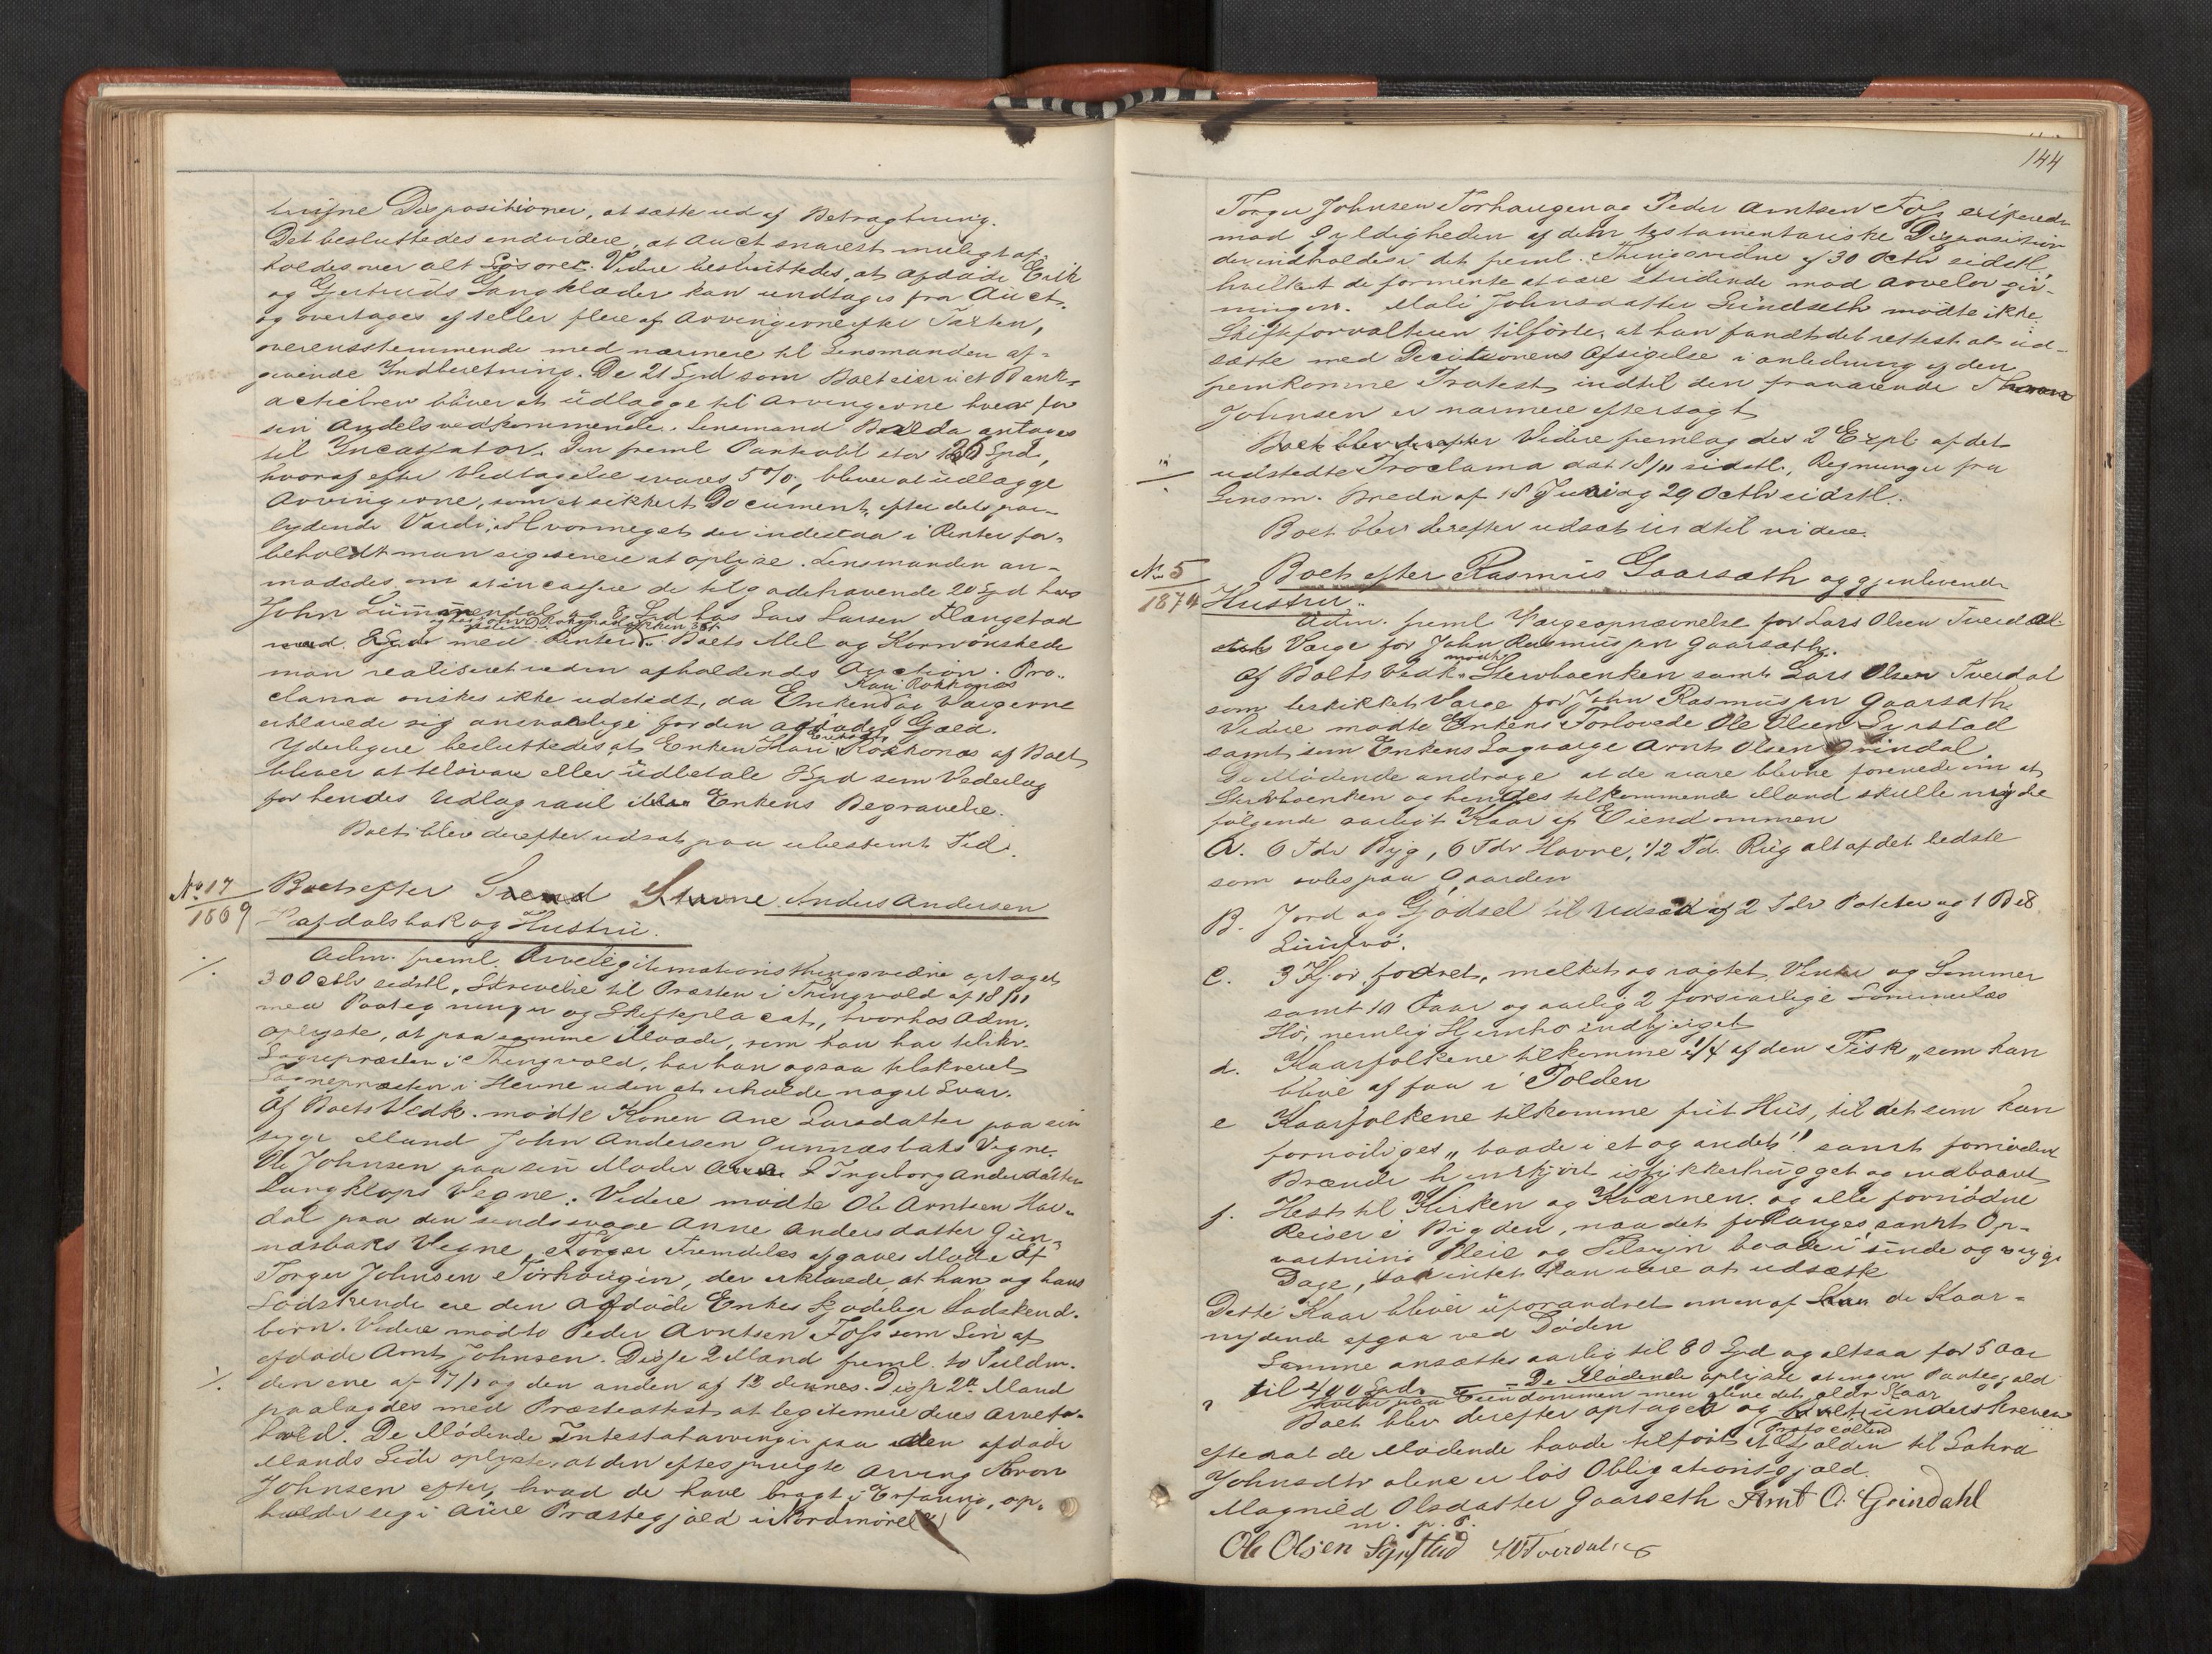 hvisne Dispositioner, at sætte ud af Betragtning.
Det besluttedes endvidere, at Auct snarest muligt af-
holdes over alt Løsøret. Videre besluttedes, at afdøde Erik
og Gjertruds Gangklæder kan undtages fra Auct.
og overtages af eller flere af Arvingerne efter Taxten,
overensstemmende med nærmere til Lensmanden af-
givende Indberetning. De 21 Spd som Boet eier i et Bank-
actiebrev bliver at udlægge til Arvingerne hver for
sin Andels vedkommende. Lensmand antages
til Incassator. Den freml Panteobl stor Spd,
hvoraf efter Vedtagelse svares 5%, bliver at udlægge
Arvingerne, som et sikkert Document, efter dets paa-
lydende Værdi. Hvormeget der indestaa i Renter for-
beholdt man sig senere at oplyse. Lensmanden an-
modedes om at incassere de tilgodehavende 20 Spd hos
John og 8 Spd hos Lars Larsen Hangstad
med Renter. Boets Mel og Korn ønskede
man realiseret ved en afholdendes Auction. Pro-
Kari Rokkones
clama ønskes ikke udstedt, da Enken og Værgerne
erklærede sig ansvarlige for den afdødes Gjæld.
Yderligere besluttedes, at Enken Kari Rokkones af Boet
bliver at tilsvare eller udbetale Spd som Vederlag
for hendes Udlæg Enkens Begravelse.
Boet blev derefter udsat paa ubestemt Tid.
No 17
1869
Boet efter Anders Andersen
og Hustru.
Adm. freml. Arvelegitimationsthingsvidne optaget
30 Octbr sidstl, Skrivelse til Præsten i Thingvold af 18/11
med Paategninger og Skifteplacat, hvorhos Adm.
oplyste, at paa samme Maade, som han har tilskr.
Sognepræsten i Thingvold, har han ogsaa tilskrevet
Sognepræsten i Hevne uden at erholde noget Svar.
Af Boets Vedk. mødte Konen Ane Larsdatter paa sin
syge Mand John Andersen Gunnæsbaks Vegne.
Ole Johnsen paa sin Moder Ingeborg Andersdatter
Langklops Vegne. Videre mødte Ole Arntsen Hav-
dal paa den sindssvage Anne Andersdatter Gun-
næsbaks Vegne, Fremdeles afgaves Møde af
Torger Johnsen Torhaugen, der erklærede, at han og hans
Sødskende ere den afdøde Enkes kjødelige Sødskend-
børn. Videre mødte Peder Arntsen Foss som Søn af
afdøde Arnt Johnsen. Disse 2 Mænd freml. to Fuldm.
den ene af 17/ og den anden af 13 dennes. Disse 2de Mænd
paalagdes med Præsteattest at legitimere deres Arvefor-
hold. De Mødende Intestatarvinger paa den afdøde
Mands Side oplyste, at den eftersøgte Arving
Johnsen efter, hvad de have bragt i Erfaring, op-
holder sig i Aure Præstegjæld i Nordmøre
144
Torger Johnsen Torhaugen og Peder Arntsen Foss exiperede
mod Gyldigheden af den testamentariske Disposition
der indholdes i det freml. Thingsvidne af 30 Octbr sidstl
hvilket de formente at være stridende mod Arvelovgiv-
ningen. Mali Johnsdatter Sundseth mødte ikke.
Skifteforvalteren tilførte, at han fandt det rettest at ud-
sætte med Decisionens Afsigelse i anledning af den
fremkomne Protest indtil den fraværende
Johnsen er nærmere eftersøgt
Videre fremlagdes 2 Expl af det
udstedte Proclama dat 18/11 sidstl., Regninger fra
Lensm. Bredn af 18 Juni og 29 Octbr sidstl.
Boet blev derefter udsat indtil videre.
No 5
1874
Boet efter Rasmus Gaarsæth og gjenlevende
Hustru.
Adm. freml Værgeopnævnelse for Lars Olsen Tverdal
Værge for John Rasmussen Gaarsæth.
Af Boets Vedk. mødte Stervboenken samt Lars Olsen Tverdal
som beskikket Værge for John Rasmussen Gaarsæth
Videre mødte Enkens Forlovede Ole Olsen Syrstad
samt som Enkens Lagværge Arnt Olsen Grindal.
De Mødende androge at de vare blevne forenede om at
Stervboenken og hendes tilkommende Mand skulle nyde
følgende aarligt Kaar af Eiendommen
A. 6 Tdr Byg, 6 Tdr Havre, 1/2 Td. Rug alt af det bedste
som avles paa Gaarden
B. Jord og Gjødsel til Udsæd af 2 Tdr Poteter og 1
Liinfrø.
C. 3 Kjør fodret, melket og røgtet Vinter og Sommer
samt 10 Faar og aarlig 2 forsvarlige Sommerlæs
Hø, nemlig Hjemhø indbjerget
d. Kaarfolkene tilkomme 1/4 af den Fisk, som kan
blive af faa i Polden
e Kaarfolkene tilkomme frit Hus, til det som kan
fornødiges "baade i et og andet" samt fornøden
Brænde hjemkjørt istykkerhugget og indbaaret
f. Hest til Kirken og Kværnen og alle fornødne
Reiser i Bygden, naar det forlanges, samt Op-
vartning Pleie og Tilsyn baade i sunde og syge
Dage, saa intet kan være at udsætte
Dette Kaar bliver uforandret om en af de Kaar-
nydende afgaa ved Døden
Samme ansættes aarlig til 80 Spd og altsaa for 5 Aar
til 400 Spd. — De Mødende oplyste at ingen Pantegjæld
hviler paa Eiendommen men alene det ældre Kaar
Boet blev derefter optaget og Protocollen underskreven
efterat de Mødende havde tilført at Gjælden til Sahra
Johnsdtr alene er løs Obligationsgjæld.
Magnild Olsdatter Gaarseth Arnt O. Grindahl
m. p. P.
Ole Olsen Syrstad LOTverdal